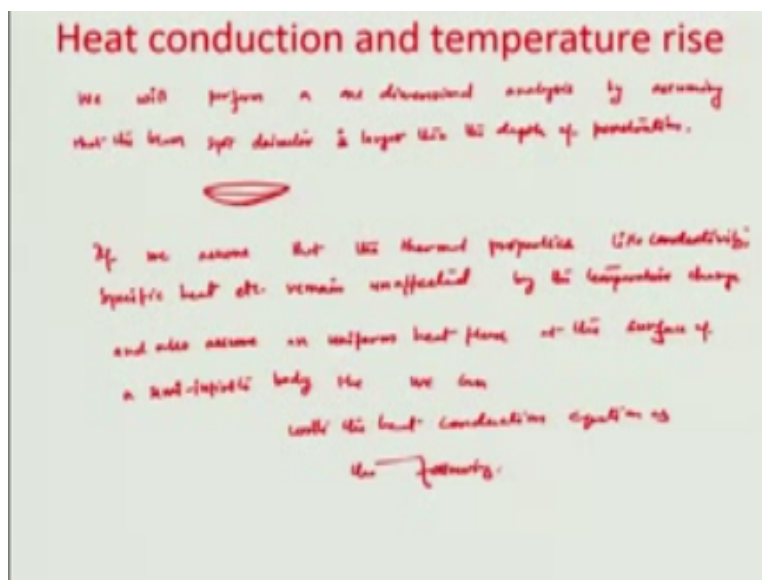 Heat conduction and temperature rise
We will perform a one dimensional analysis by assuming
that the beam spot diameter is larger than the depth of penetration.
If we assume that the thermal properties like conductivity,
specific heat etc. remain unaffected by the temperature change
and also assume an uniform heat flux at the surface of
a semi-infinite body the we can
write the heat conduction equation as
the following.